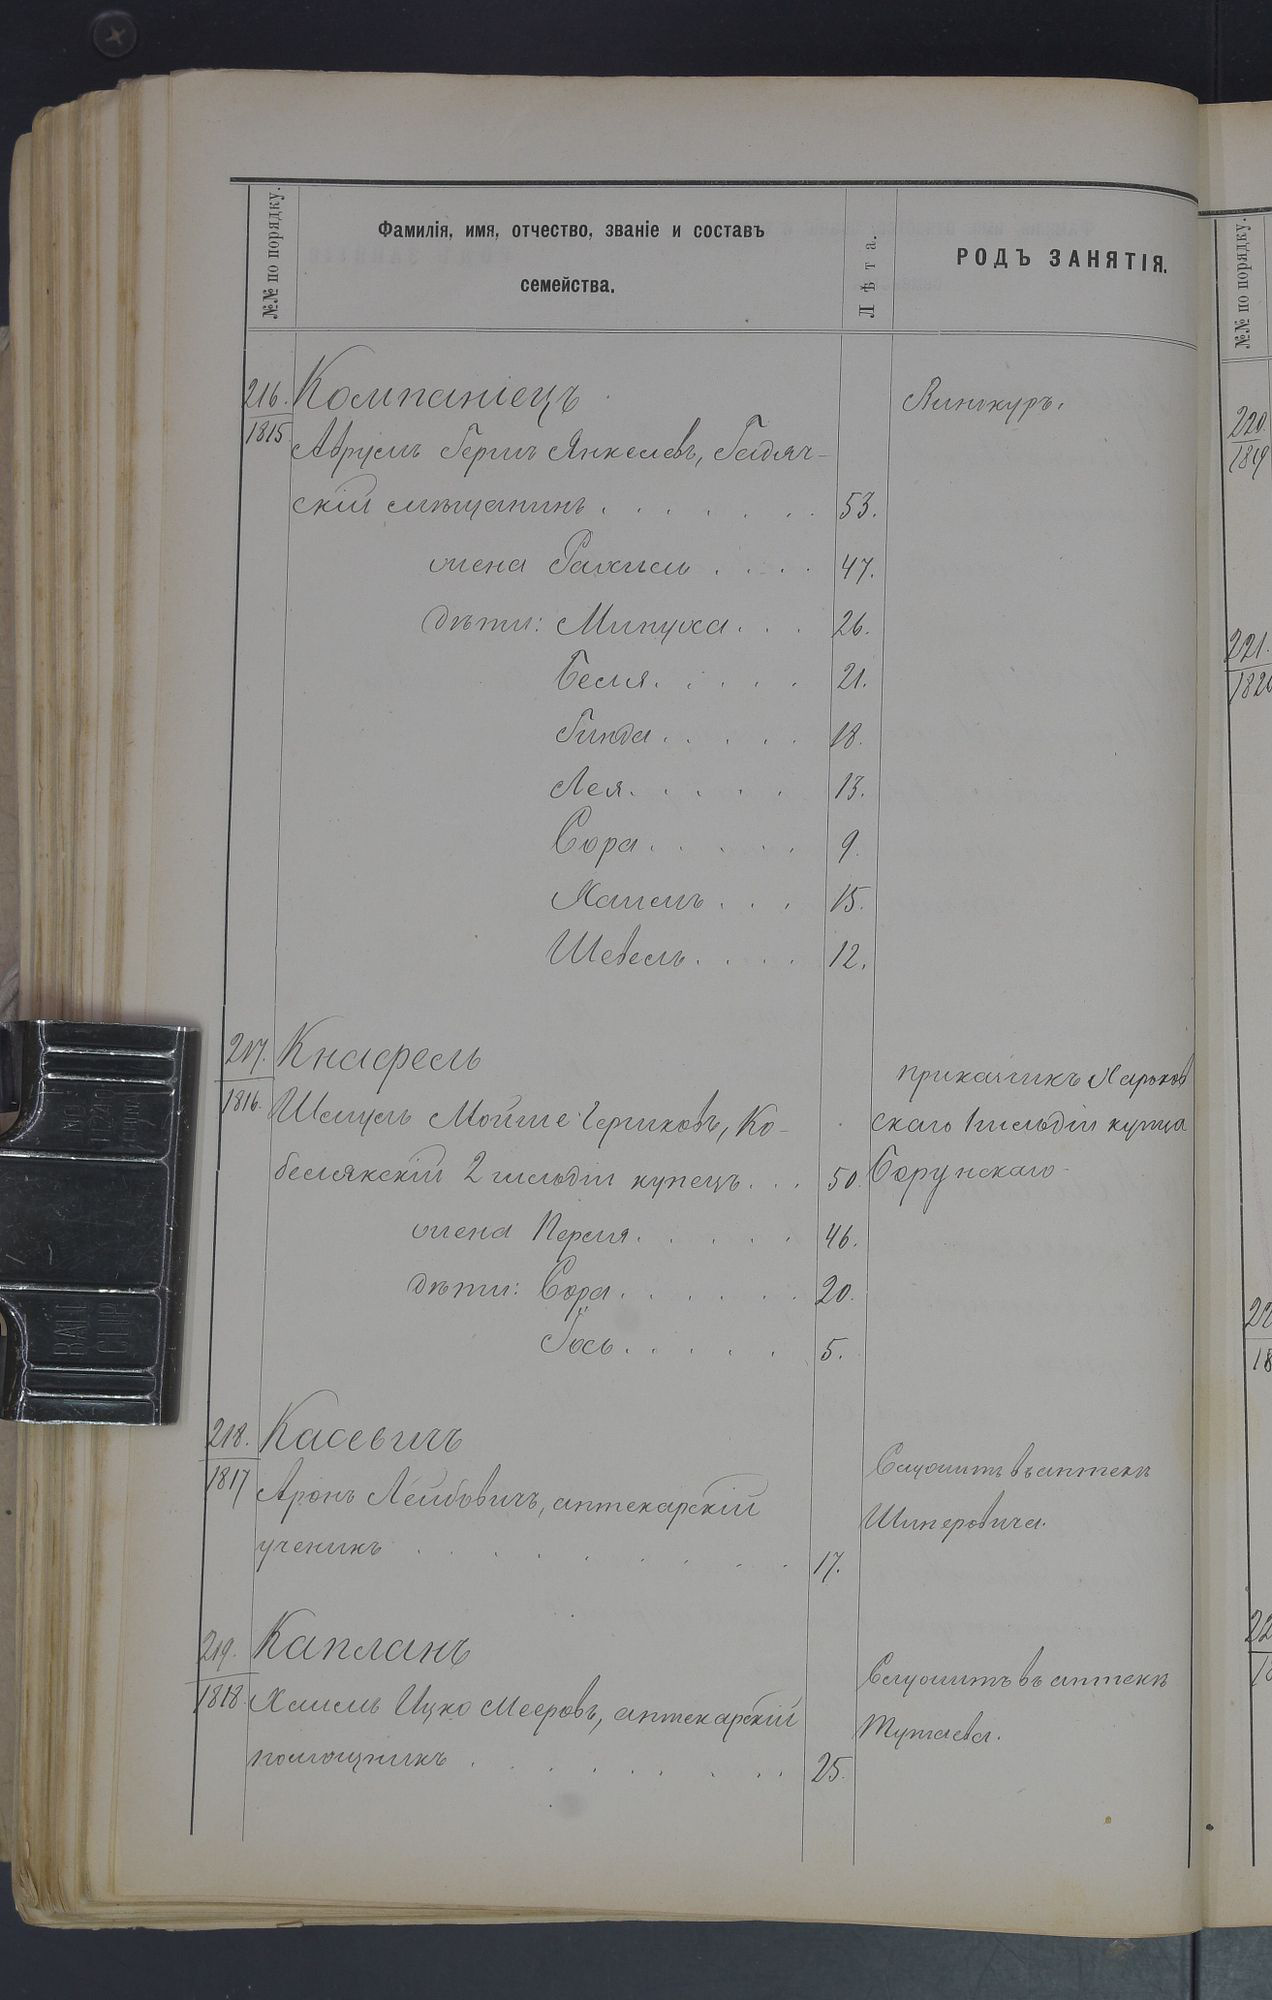 №№ по порядку.
Фамилія, имя, отчество, званіе и составъ
семейства.
Лѣта.
РОДЪ ЗАНЯТІЯ.
216. Компаніецъ
1815
Винокуръ.
Аврумъ Гершъ Янкелевъ, Гадяч-
скій мѣщанинъ 53.
жена Рахиль 47.
дѣти: Минуха 26.
Бейля 21.
Гинда 18.
Лея 13.
Сора 9.
Хаимъ 15.
Шевель 12.
217. Кнафель
1816.
прикащикъ Харьков
Шмуль Мойше Гершковъ, Ко-
скаго 1 гильдіи купца
белякскій 2 гильдіи купецъ 50.
жена Перля 46.
дѣти: Сора 20.
5.
218. Касевичъ
1817
Служитъ въ аптекѣ
Аронъ Лейбовичъ, аптекарскій
ученикъ 17.
219. Капланъ
1818.
Служитъ въ аптекѣ
Хаимъ Ицко Мееровъ, аптекарскій
помощникъ 25.
№№ по порядку.
220.
1819
221.
BALL
CLIP